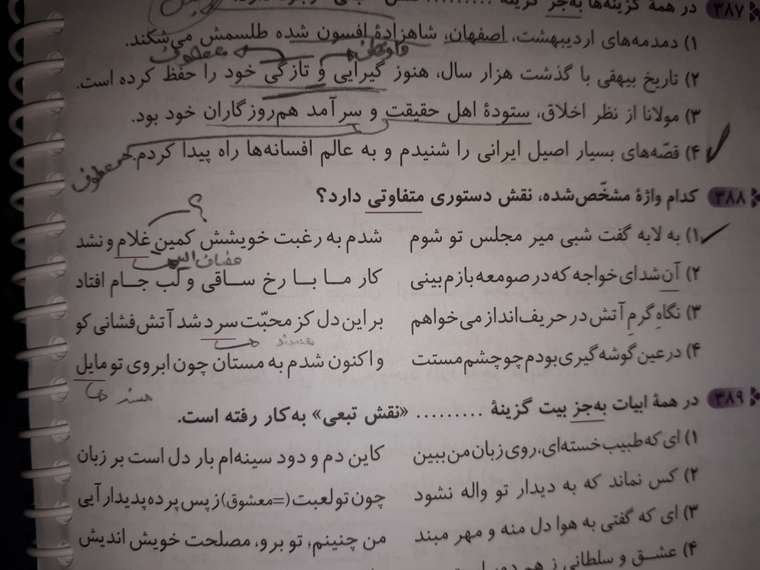 ۳۸۷ در همهٔ گزینه‌ها به‌جز گزینهٔ .........
۱) دمدمه‌های اردیبهشت، اصفهان، شاهزادهٔ افسون شده طلسمش می‌شکند.
معطوف واو عطف
۲) تاریخ بیهقی با گذشت هزار سال، هنوز گیرایی و تازگی خود را حفظ کرده است.
۳) مولانا از نظر اخلاق، ستودهٔ اهل حقیقت و سرآمد هم‌روزگاران خود بود.
۴) قصّه‌های بسیار اصیل ایرانی را شنیدم و به عالم افسانه‌ها راه پیدا کردم.
معطوف
۳۸۸ کدام واژهٔ مشخّص‌شده، نقش دستوری متفاوتی دارد؟
؟
۱) به لابه گفت شبی میر مجلس تو شوم شدم به رغبت خویشش کمین غلام و نشد
مضاف الیه
۲) آن شدای خواجه که در صومعه بازم بینی کار ما با رخ ساقی و لب جام افتاد
۳) نگاهِ گرمِ آتش در حریف‌انداز می‌خواهم بر این دل کز محبّت سرد شد آتش‌فشانی کو
۴) در عین گوشه‌گیری بودم چو چشم مستت واکنون شدم به مستان چون ابروی تو مایل
مسند
۳۸۹ در همهٔ ابیات به‌جز بیت گزینهٔ ......... «نقش تبعی» به‌کار رفته است.
۱) ای که طبیب خسته‌ای، روی زبان من ببین کاین دم و دود سینه‌ام بار دل است بر زبان
۲) کس نماند که به دیدار تو واله نشود چون تو لعبت (=معشوق) ز پس پرده پدیدار آیی
۳) ای که گفتی به هوا دل منه و مهر مبند من چنینم، تو برو، مصلحت خویش اندیش
۴) عشق و سلطانی ز هم